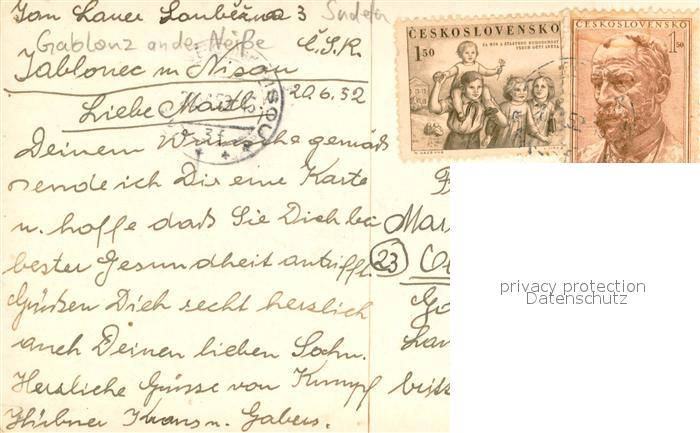 Jan Lauer Loubežna 3 Sudeten
Gablonz an der Neiße
Č.S.R.
Jablonec n Nisou
Liebe Martl. 20.6.52
Deinem Wunsche gemäß
sende ich Dir eine Karte
u. hoffe daß Sie Dich bei
bester Gesundheit antrifft.
Grüßen Dich recht herzlich
auch Deinen lieben Sohn.
Herzliche Grüsse von Kumpf
Hübner Kraus u. Gabers.
ČESKOSLOVENSKO
1,50
ZA MÍR A ŠŤASTNOU BUDOUCNOST
VŠECH DĚTÍ SVĚTA
ČESKOSLOVENSKO
1,50
Mar
23
privacy protection
Datenschutz